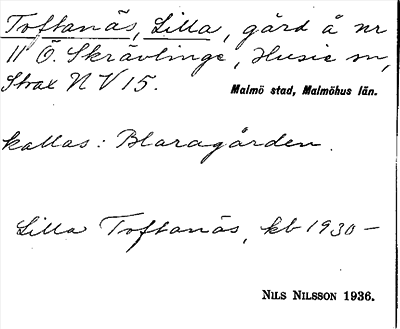 Toftanäs, Lilla, gård å nr
11 Ö. Skrävlinge, Husie sn,
Strax N V 15.
Malmö stad, Malmöhus län.
kallas: Blaragården.
Lilla Toftanäs, kb 1930 –
NILS NILSSON 1936.